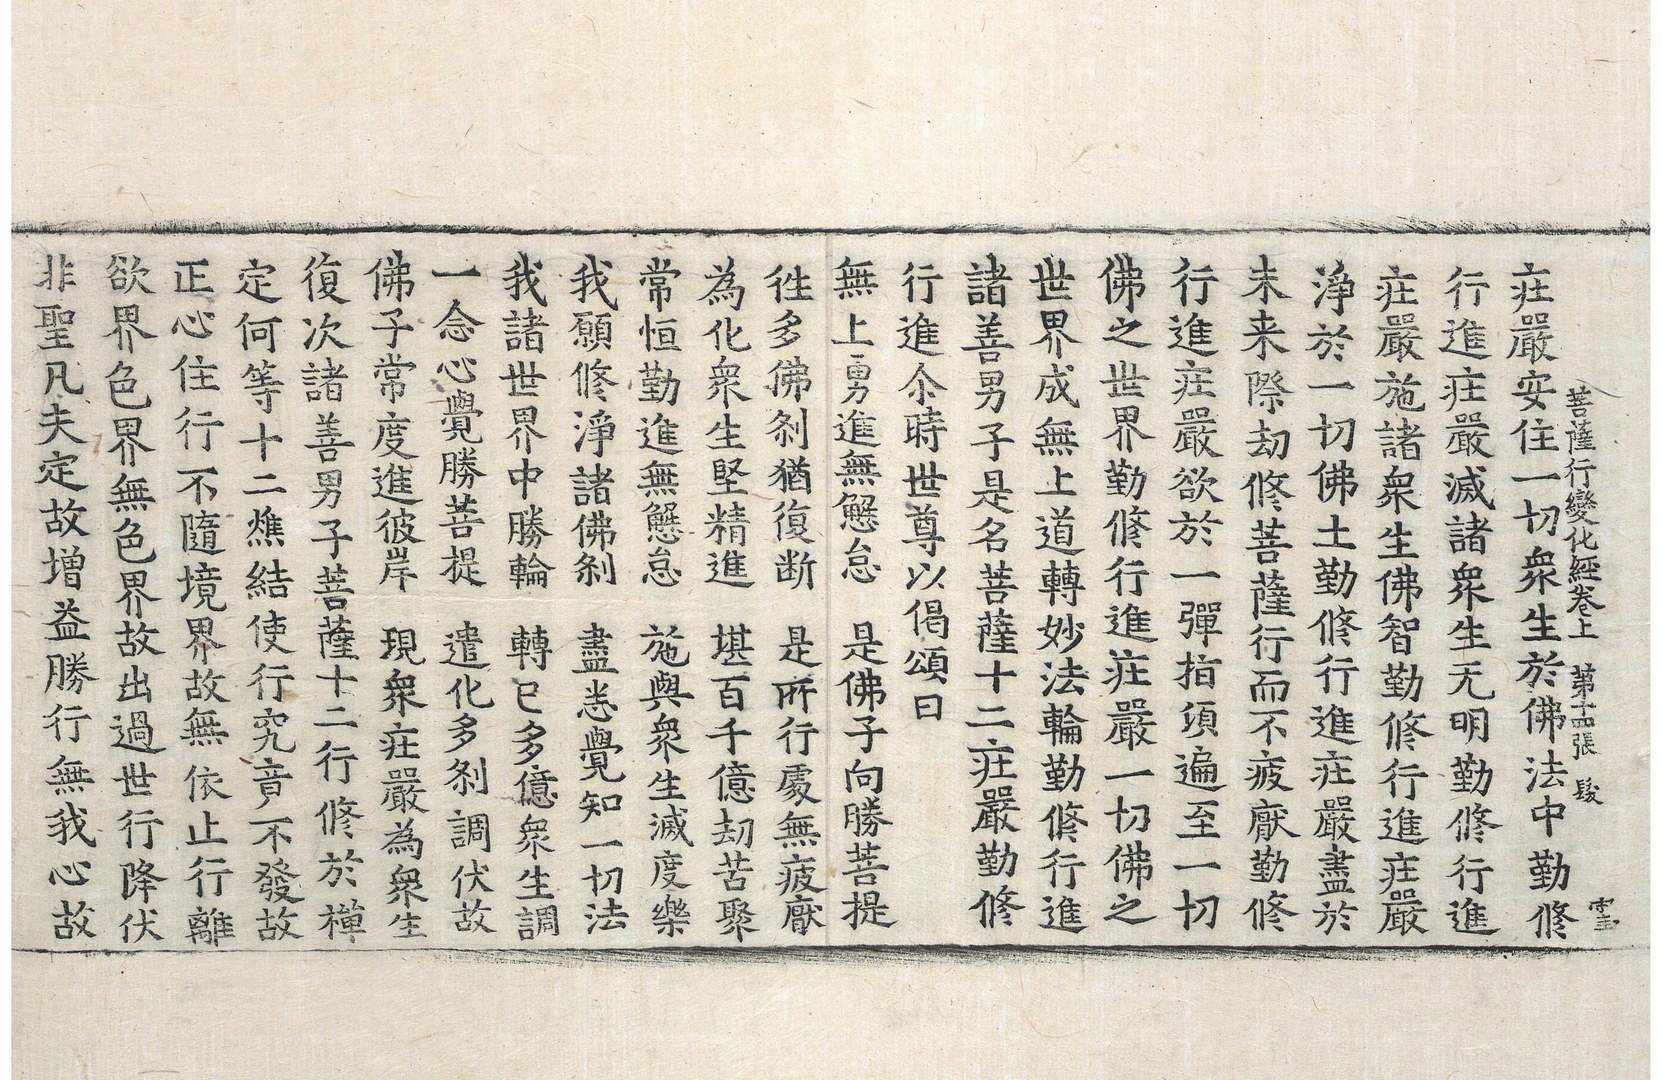 菩薩行變化經卷上　第十四張　髮
疘嚴安住一切衆生於佛法中勤修
行進疘嚴滅諸衆生无明勤修行進
疘嚴施諸衆生佛智勤修行進疘嚴
淨於一切佛土勤修行進疘嚴盡於
未来際劫修菩薩行而不疲厭勤修
行進疘嚴欲於一彈指須遍至一切
佛之世界勤修行進疘嚴一切佛之
世界成無上道轉妙法輪勤修行進
諸善男子是名菩薩十二疘嚴勤修
行進尒時世尊以偈頌曰
無上勇進無懈怠　是佛子向勝菩提
徃多佛刹猶復断　是所行處無疲厭
為化衆生堅精進　堪百千億劫苦聚
常恒勤進無懈怠　施與衆生滅度樂
我願修淨諸佛刹　盡悉覺知一切法
我諸世界中勝輪　轉已多億衆生調
一念心覺勝菩提　遣化多刹調伏故
佛子常度進彼岸　現衆疘嚴為衆生
復次諸善男子菩薩十二行修於禪
定何等十二燋結使行究竟不發故
正心住行不隨境界故無依止行離
欲界色界無色界故出過世行降伏
非聖凡夫定故增益勝行無我心故